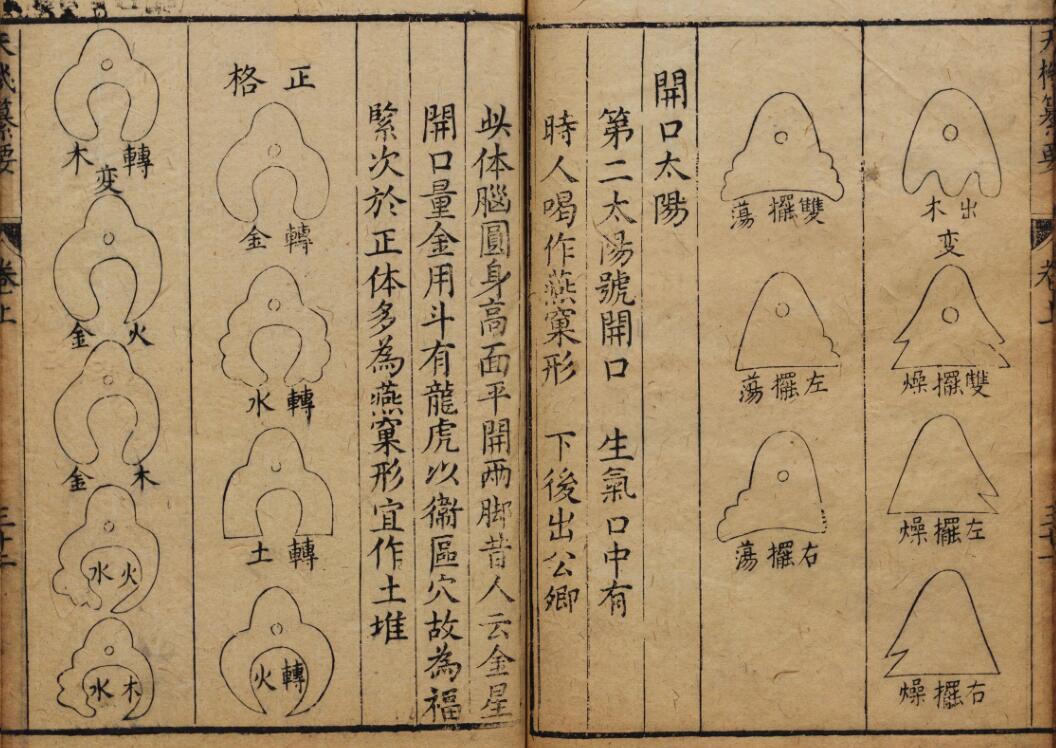 天機纂要
卷上
出木
変
雙擺燥
左擺燥
右擺燥
雙擺蕩
左擺蕩
右擺蕩
開口太陽
第二太陽號開口 生氣口中有
時人喝作燕窠形 下後出公卿
此体腦圓身高面平開兩脚昔人云金星
開口量金用斗有龍虎以衛區穴故為福
緊次於正体多為燕窠形宜作土堆
正格
轉金
轉水
轉土
轉火
轉木
変
火金
木金
火水
木水
天機纂要
卷上
三十二